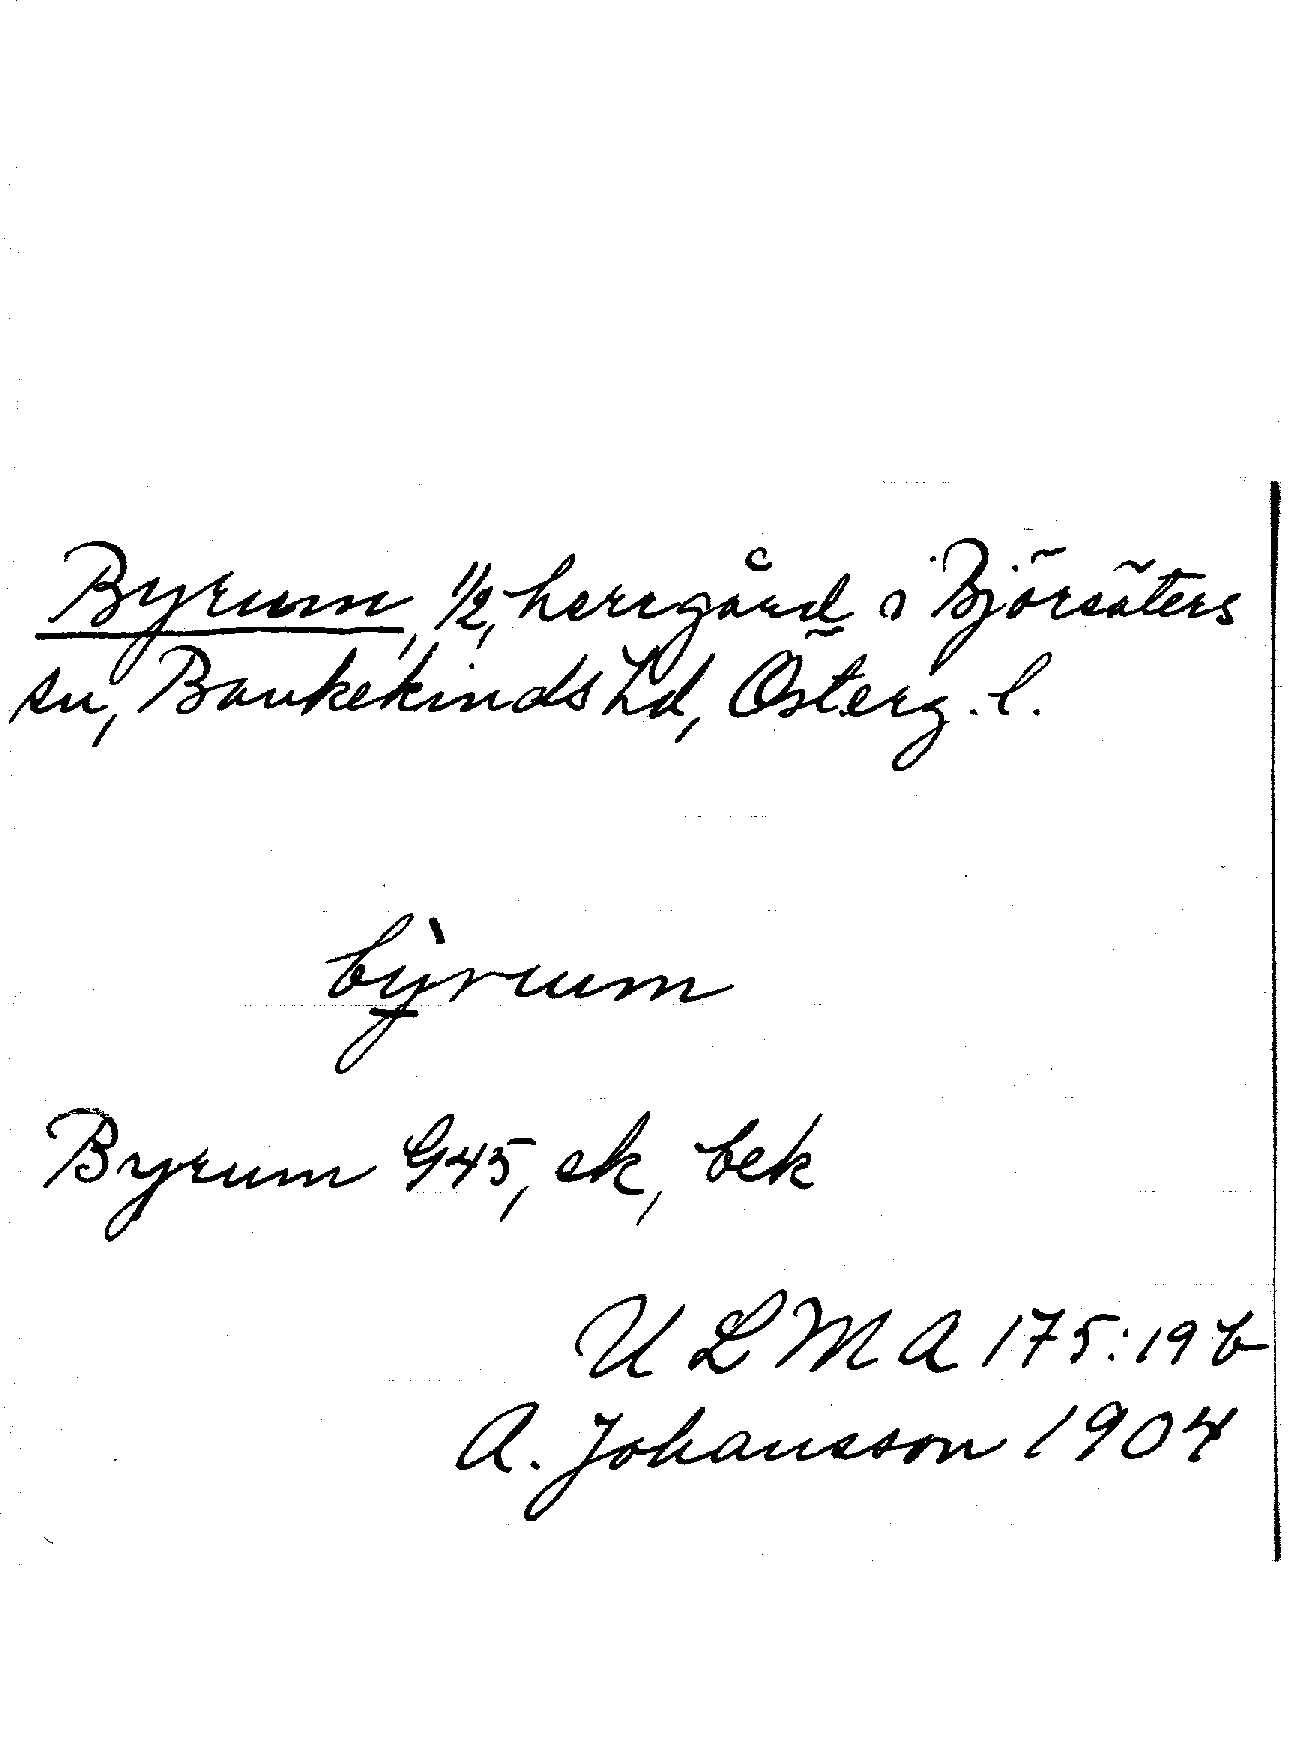 Byrum, 1/2, herrgård i Björsäters
sn, Bankekinds hd, Österg. l.
bỳrum
Byrum G45, ek, bek
ULMA 175:19 b
A. Johansson 1904